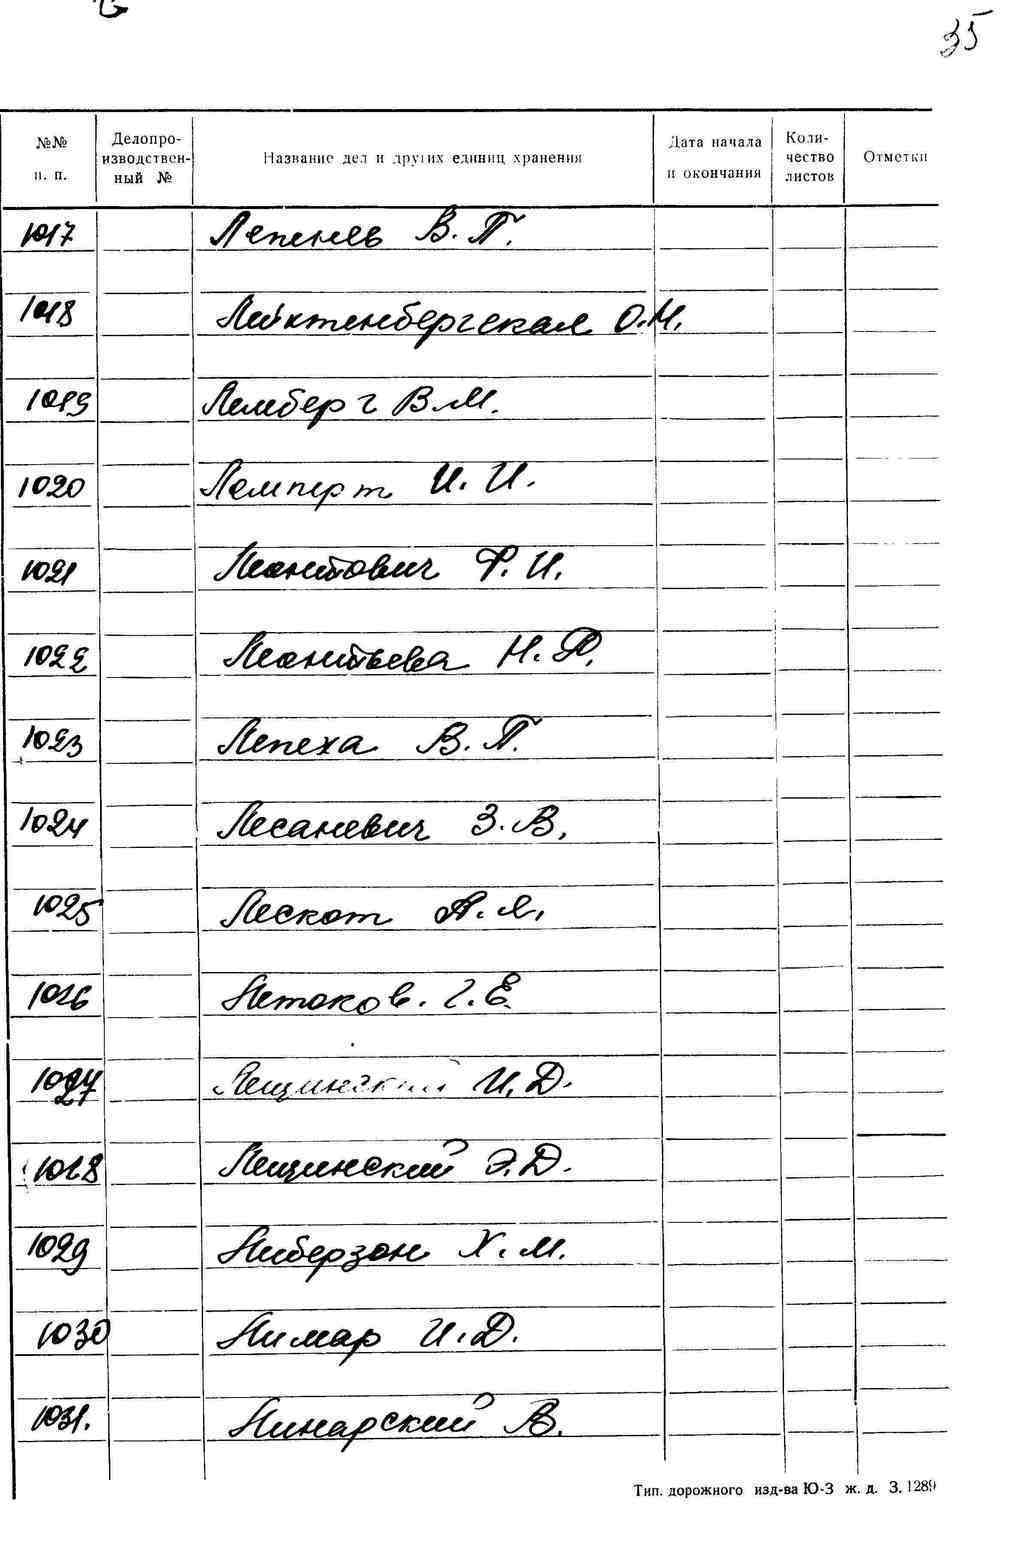 35
№№ п. п. Делопроизводственный № Название дел и других единиц хранения Дата начала и окончания Количество листов Отметки
1017 Лепенев В. П.
1018 Лейктенбергская О.Н.
1019 Лемберг В.М.
1020 Лемперт И. И.
1021 Леонтович Ф. И.
1022 Леонтьева Н. Ф.
1023 Лепеха В. П.
1024 Лесаневич З. В.
1025 Лескот А. Я.
1026 Летоков. Г. Е.
1027 Лещинский И. Д.
1028 Лещинский Э. Д.
1029 Либерзон Х. М.
1030 Лимар И. Д.
1031. Линарский В.
Тип. дорожного изд-ва Ю-З ж. д. З. 1289